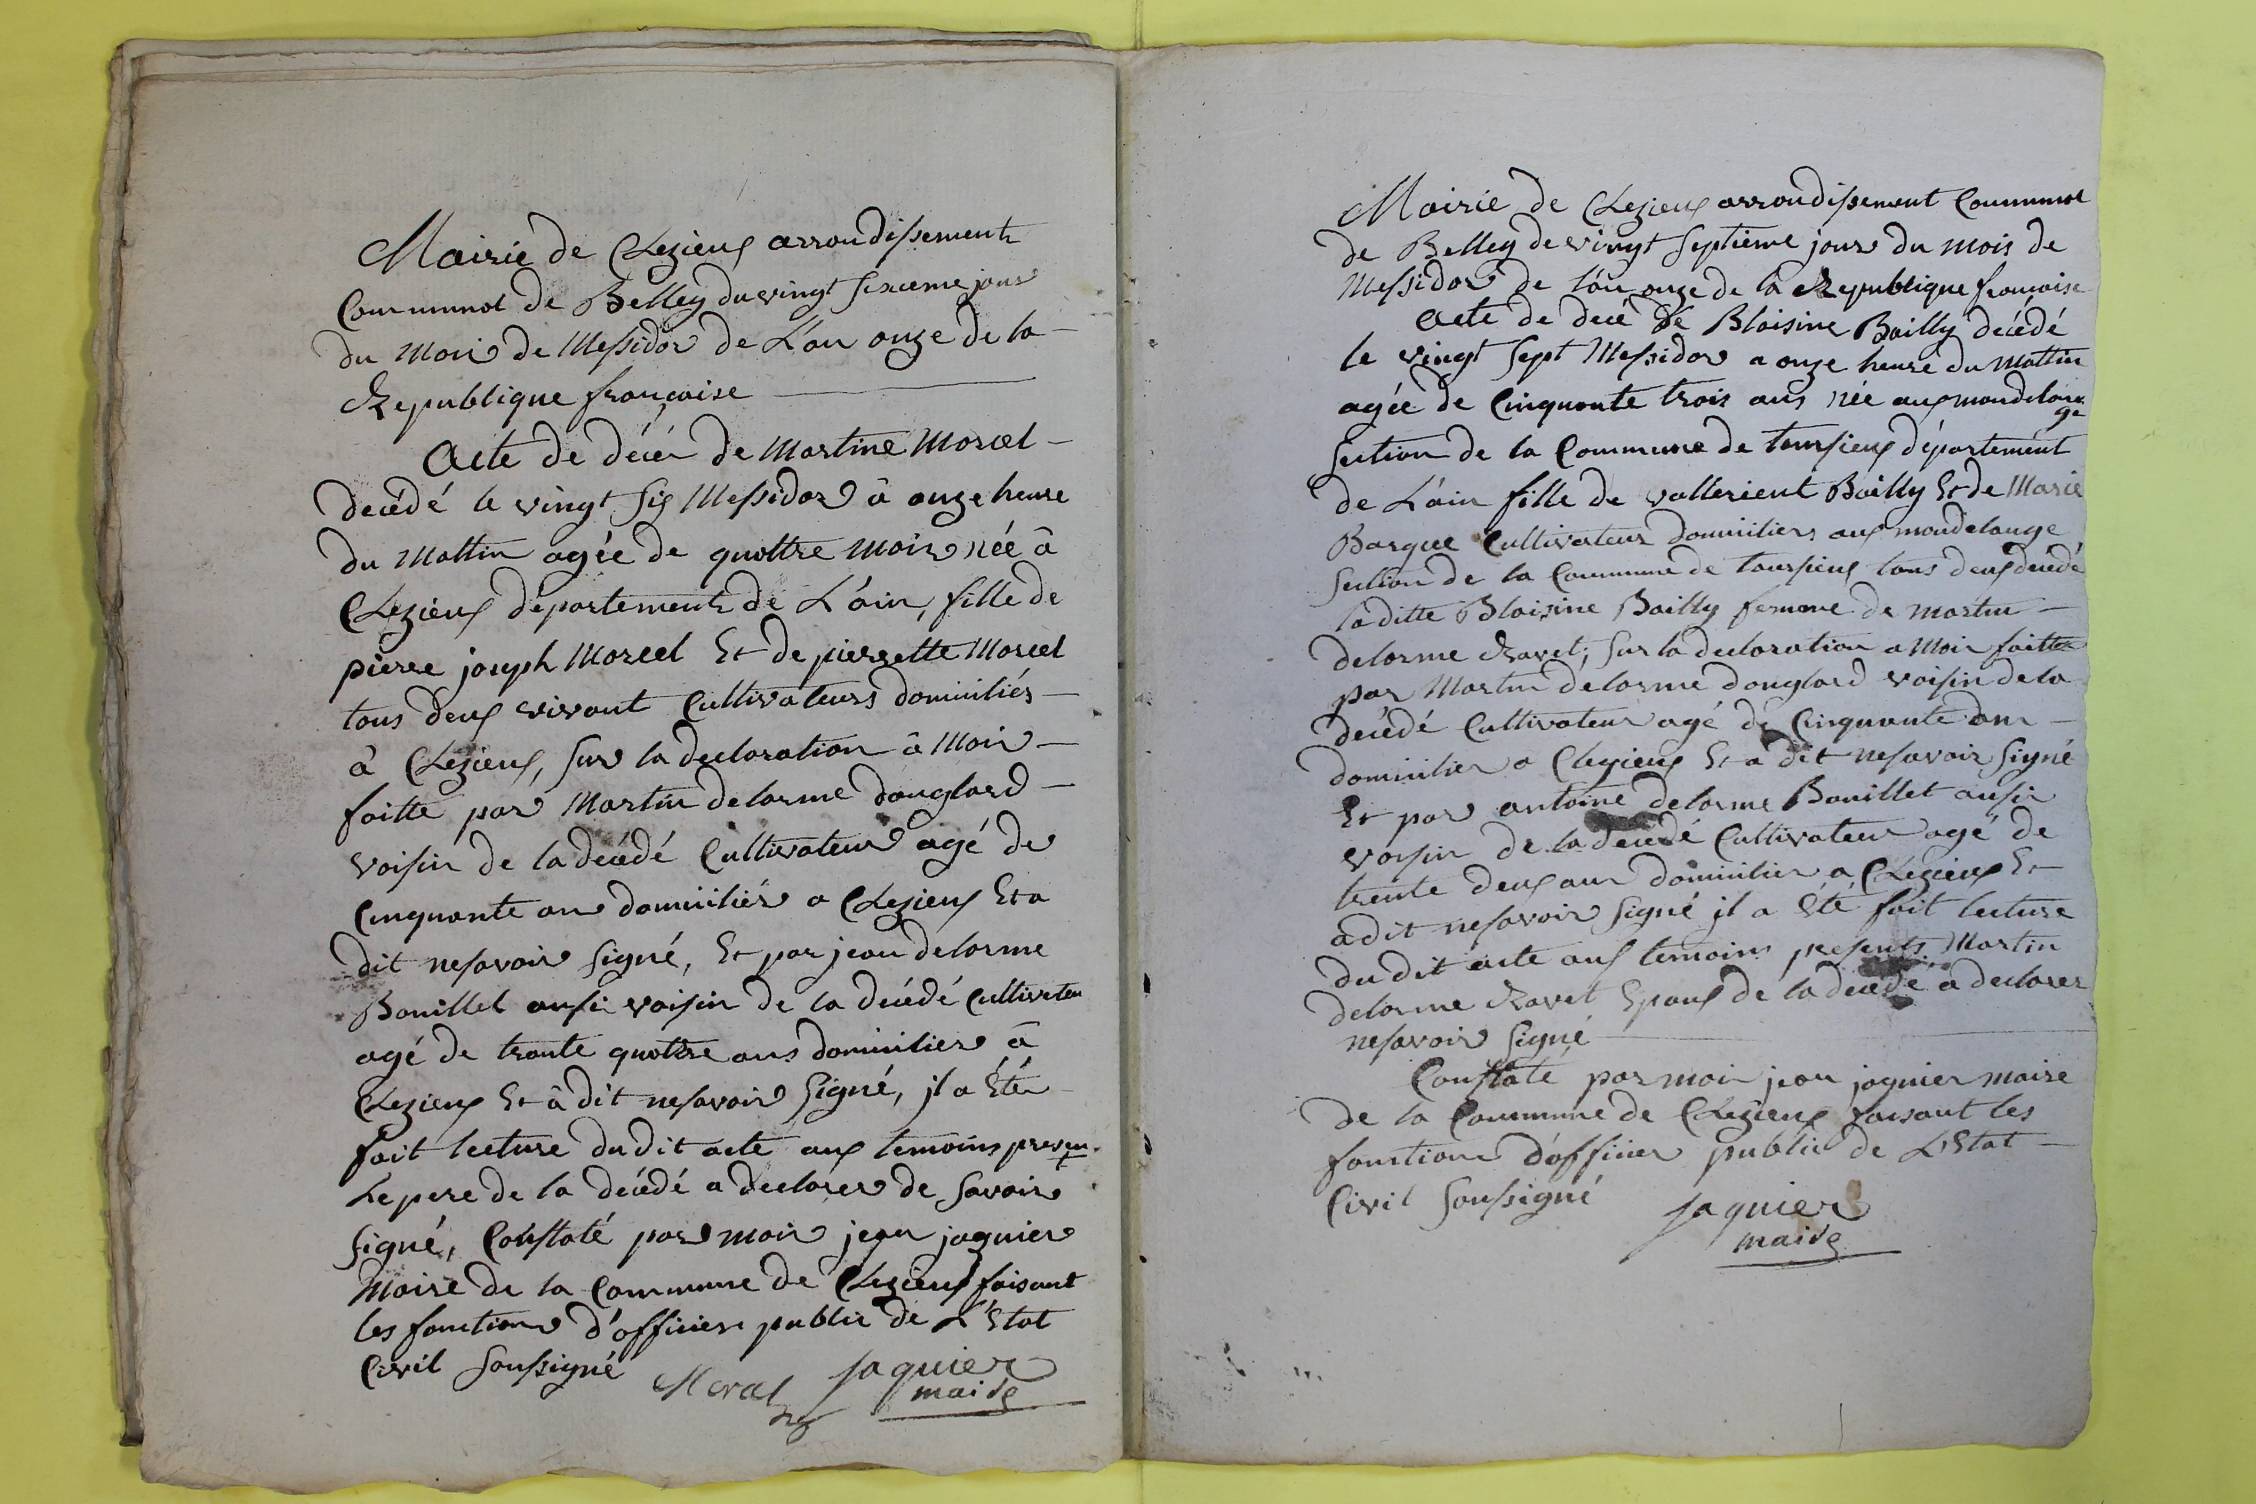 Mairie de Clezieux arrondissement
Communol de Belley du vingt sixieme jour
du Mois de Messidor de L'an onze de la
Republique françoise
Acte de décés de Martine Morcel
decédé le vingt six Messidor à onze heure
du Mattin agée de quottre Mois née à
Clezieux département de L'ain, fille de
pierre joseph Morcel Et de pierrette Morcel
tous deux vivant Cultivateurs domiciliés
à Clezieux, sur la declaration à Moi
foitte par Martin delorme douglard
voisin de la decédé Cultivateur agé de
Cinquante ans domiciliés a Clezieux Et a
dit nesavoir signé, Et par jean delorme
Bouillet aussi voisin de la decédé Cultivateu
agé de trante quottre ans domicilier à
Clezieux Et à dit nesavoir signé, il a Eté
fait lecture du dit acte aux temoins presen
Le pere de la décédé a declarer de savoir
signé, Constaté par moi jean jaquier
Maire de la Commune de Clezieux faisant
les fonctions d'officier public de L'Etat
Civil soussigné
Morcel jaquier
maire
Mairie de Clezieux arrondissement Communol
de Belley de vingt septieme jour du mois de
Messidor de l'an onze de la Republique françoise
Acte de decé de Bloisine Boilly decédé
le vingt sept Messidor a onze heure du Mattin
agée de Cinquonte trois ans née aux mondelon
ge
section de la Commune de toursieux département
de L'ain fille de vallerient Boilly Et de Marie
Barque Cultivateur domiciliers aux mondelange
section de la Commune de toursieux tous deux decédé
la ditte Bloisine Boilly femme de martin
delorme Ravet; sur la declaration a Moi foitte
par Martin delorme douglard voisin de la
decédé Cultivateur agé de Cinquante an
domicilier a Clezieux Et a dit nesavoir signé
Et par antoine delorme Bouillet aussi
voisin de la decedé Cultivateur agé de
trente deux ans domicilier a Clezieux Et
a dit nesavoir signé il a Eté foit lecture
du dit acte aux temoins presents Martin
delorme Ravet Epoux de la decedé a declarer
nesavoir signé
Constaté par moi jean jaquier maire
de la Commune de Clezieux faisant les
fonctions d'officier public de L'Etat
Civil soussigné
jaquier
maire